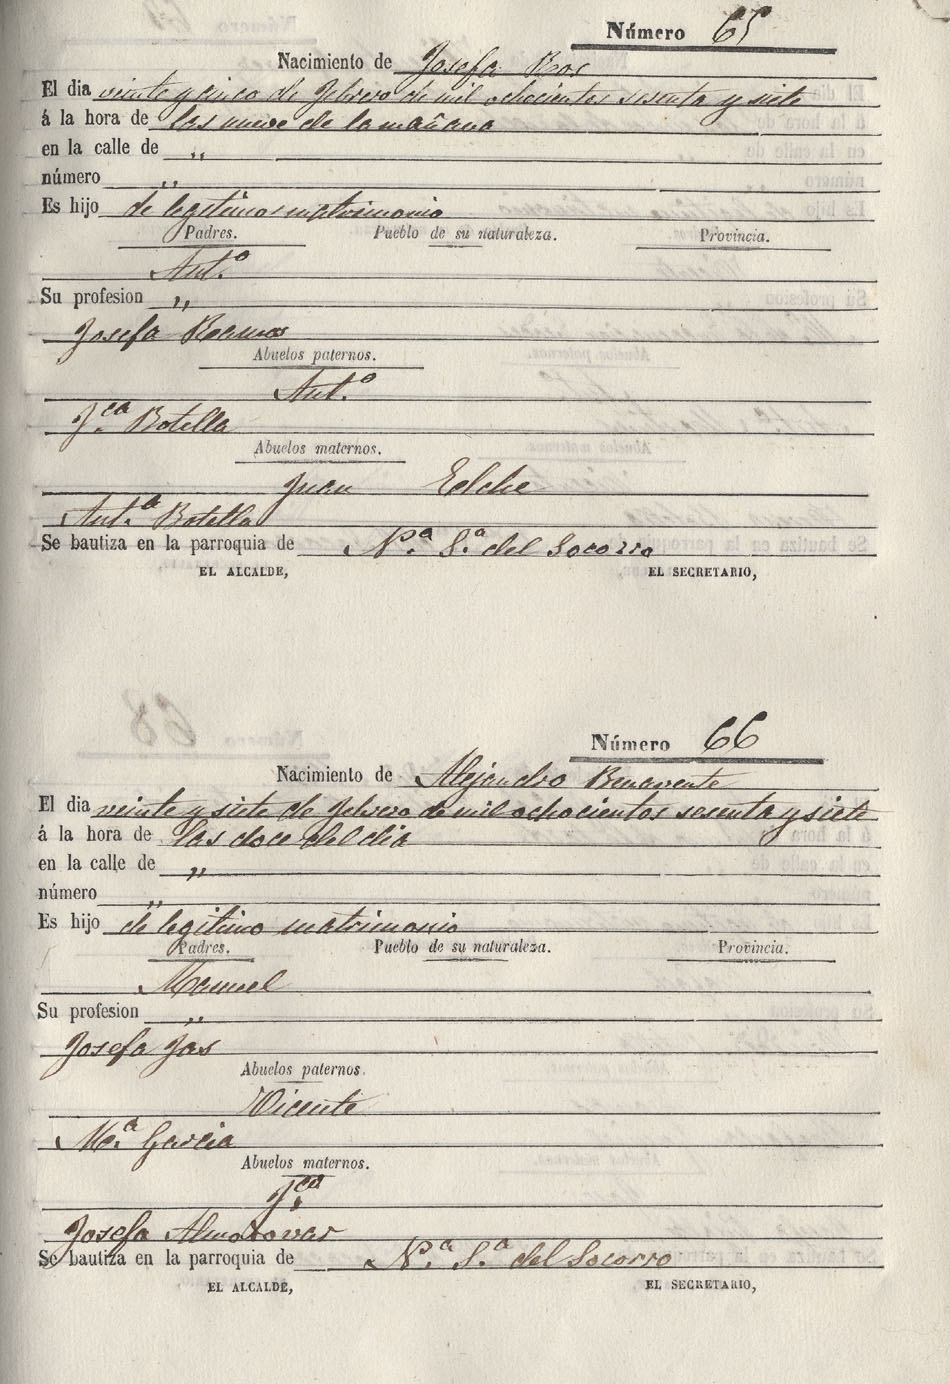 Número 65
Nacimiento de Josefa Ros
El dia veinte y cinco de febrero de mil ochocientos sesenta y siete
á la hora de las nueve de la mañana
en la calle de "
número "
Es hijo de legitimo matrimonio
Padres. Pueblo de su naturaleza. Provincia.
Ant.º
Su profesion "
Josefa Ramos
Abuelos paternos.
Ant.º
F.ca Botella
Abuelos maternos.
Juan Elche
Ant.ª Botella
Se bautiza en la parroquia de N.ª S.ª del Socorro
EL ALCALDE, EL SECRETARIO,
Número 66
Nacimiento de Alejandro Benavente
El dia veinte y siete de febrero de mil ochocientos sesenta y siete
á la hora de las doce del dia
en la calle de "
número "
Es hijo de legitimo matrimonio
Padres. Pueblo de su naturaleza. Provincia.
Manuel
Su profesion "
Josefa Jas
Abuelos paternos.
Vicente
M.ª Garcia
Abuelos maternos.
F.co
Josefa Almodovar
Se bautiza en la parroquia de N.ª S.ª del Socorro
EL ALCALDE, EL SECRETARIO,